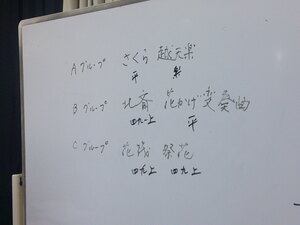 Aグループ さくら 越天楽
平 楽
Bグループ 北斎 花かげ変奏曲
四九上 平
Cグループ 花残 祭花
四九上 四九上